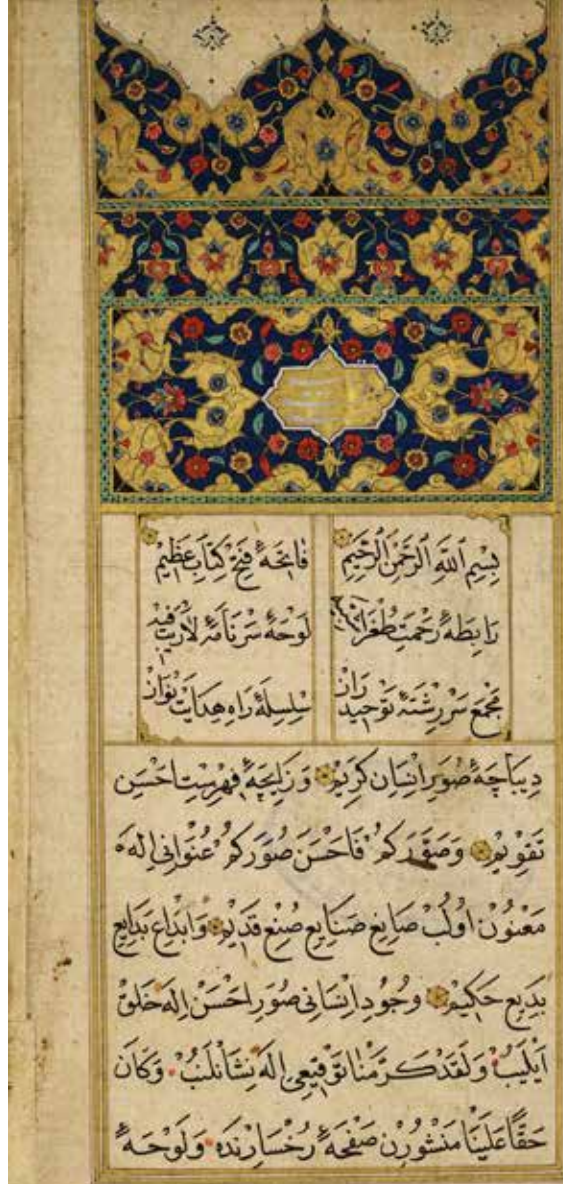 بِسْمِ اللّٰهِ الرَّحْمٰنِ الرَّحِيمِ فَاتِحَهٔ فَتْحِ كِتَابِ عَظِيمْ
رَابِطَهٔ رَحْمَتِ طُغْرَاىِ لَوْحَهٔ سَرْنَامَهٔ لَارَيْبَ فِيهْ
مَجْمَعِ سَرْرِشْتَهٔ تَوْحِيدِ رَازْ سِلْسِلَهٔ رَاهِ هِدَايَتْ نَوَازْ
دِيبَاچَهٔ صُوَرِ اِنْسَانِ كَرِيمْ وَ زَايِچَهٔ فِهْرِسْتِ اَحْسَنِ
تَقْوِيمْ وَصَوَّرَكُمْ فَاَحْسَنَ صُوَرَكُمْ عُنْوَانِى اِلَه
مَعْنُونْ اُولُبْ صَايِغِ صَنَايِعِ صُنْعِ قَدِيمْ وَ اِبْدَاعِ بَدَايِعِ
بَدِيعِ حَكِيمْ وُجُودِ اِنْسَانِى صُوَرِ اَحْسَنْ اِلَه خَلْقْ
اَيْلَيُبْ وَلَقَدْ كَرَّمْنَا تَوْقِيعِى اِلَه نِشَانْلَيُبْ وَكَانَ
حَقًّا عَلَيْنَا مَنْشُورِنْ صَفْحَهٔ رُخْسَارِنْدَه وَ لَوْحَهٔ